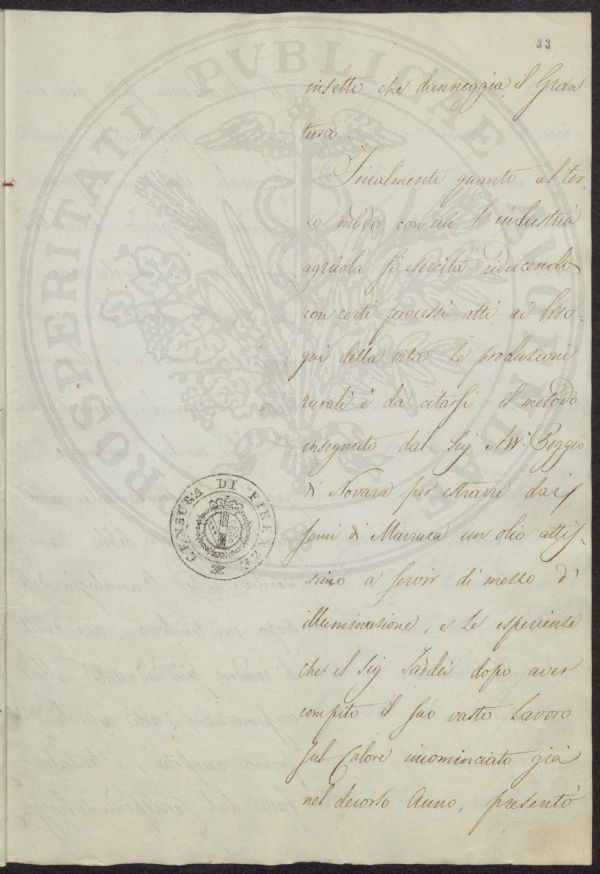 33
insetti che danneggia il Gran
turco.
Finalmente quanto al ter-
zo modo con cui l'industria
agricola si esercita riducendo
con certi processi atti ai biso-
gni della vita le produzioni
rurali è da citarsi il metodo
insegnato dal Sig. Avv. Poggio
di Novara per estrarre dai
semi di Marruca un olio attis-
simo a servir di mezzo d'
illuminazione, e le esperienze
che il Sig Taddei dopo aver
compito il suo vasto Lavoro
sul Calore incominciato già
nel decorso Anno, presentò
CENSURA DI FIRENZE
PROSPERITATI PVBLICAE